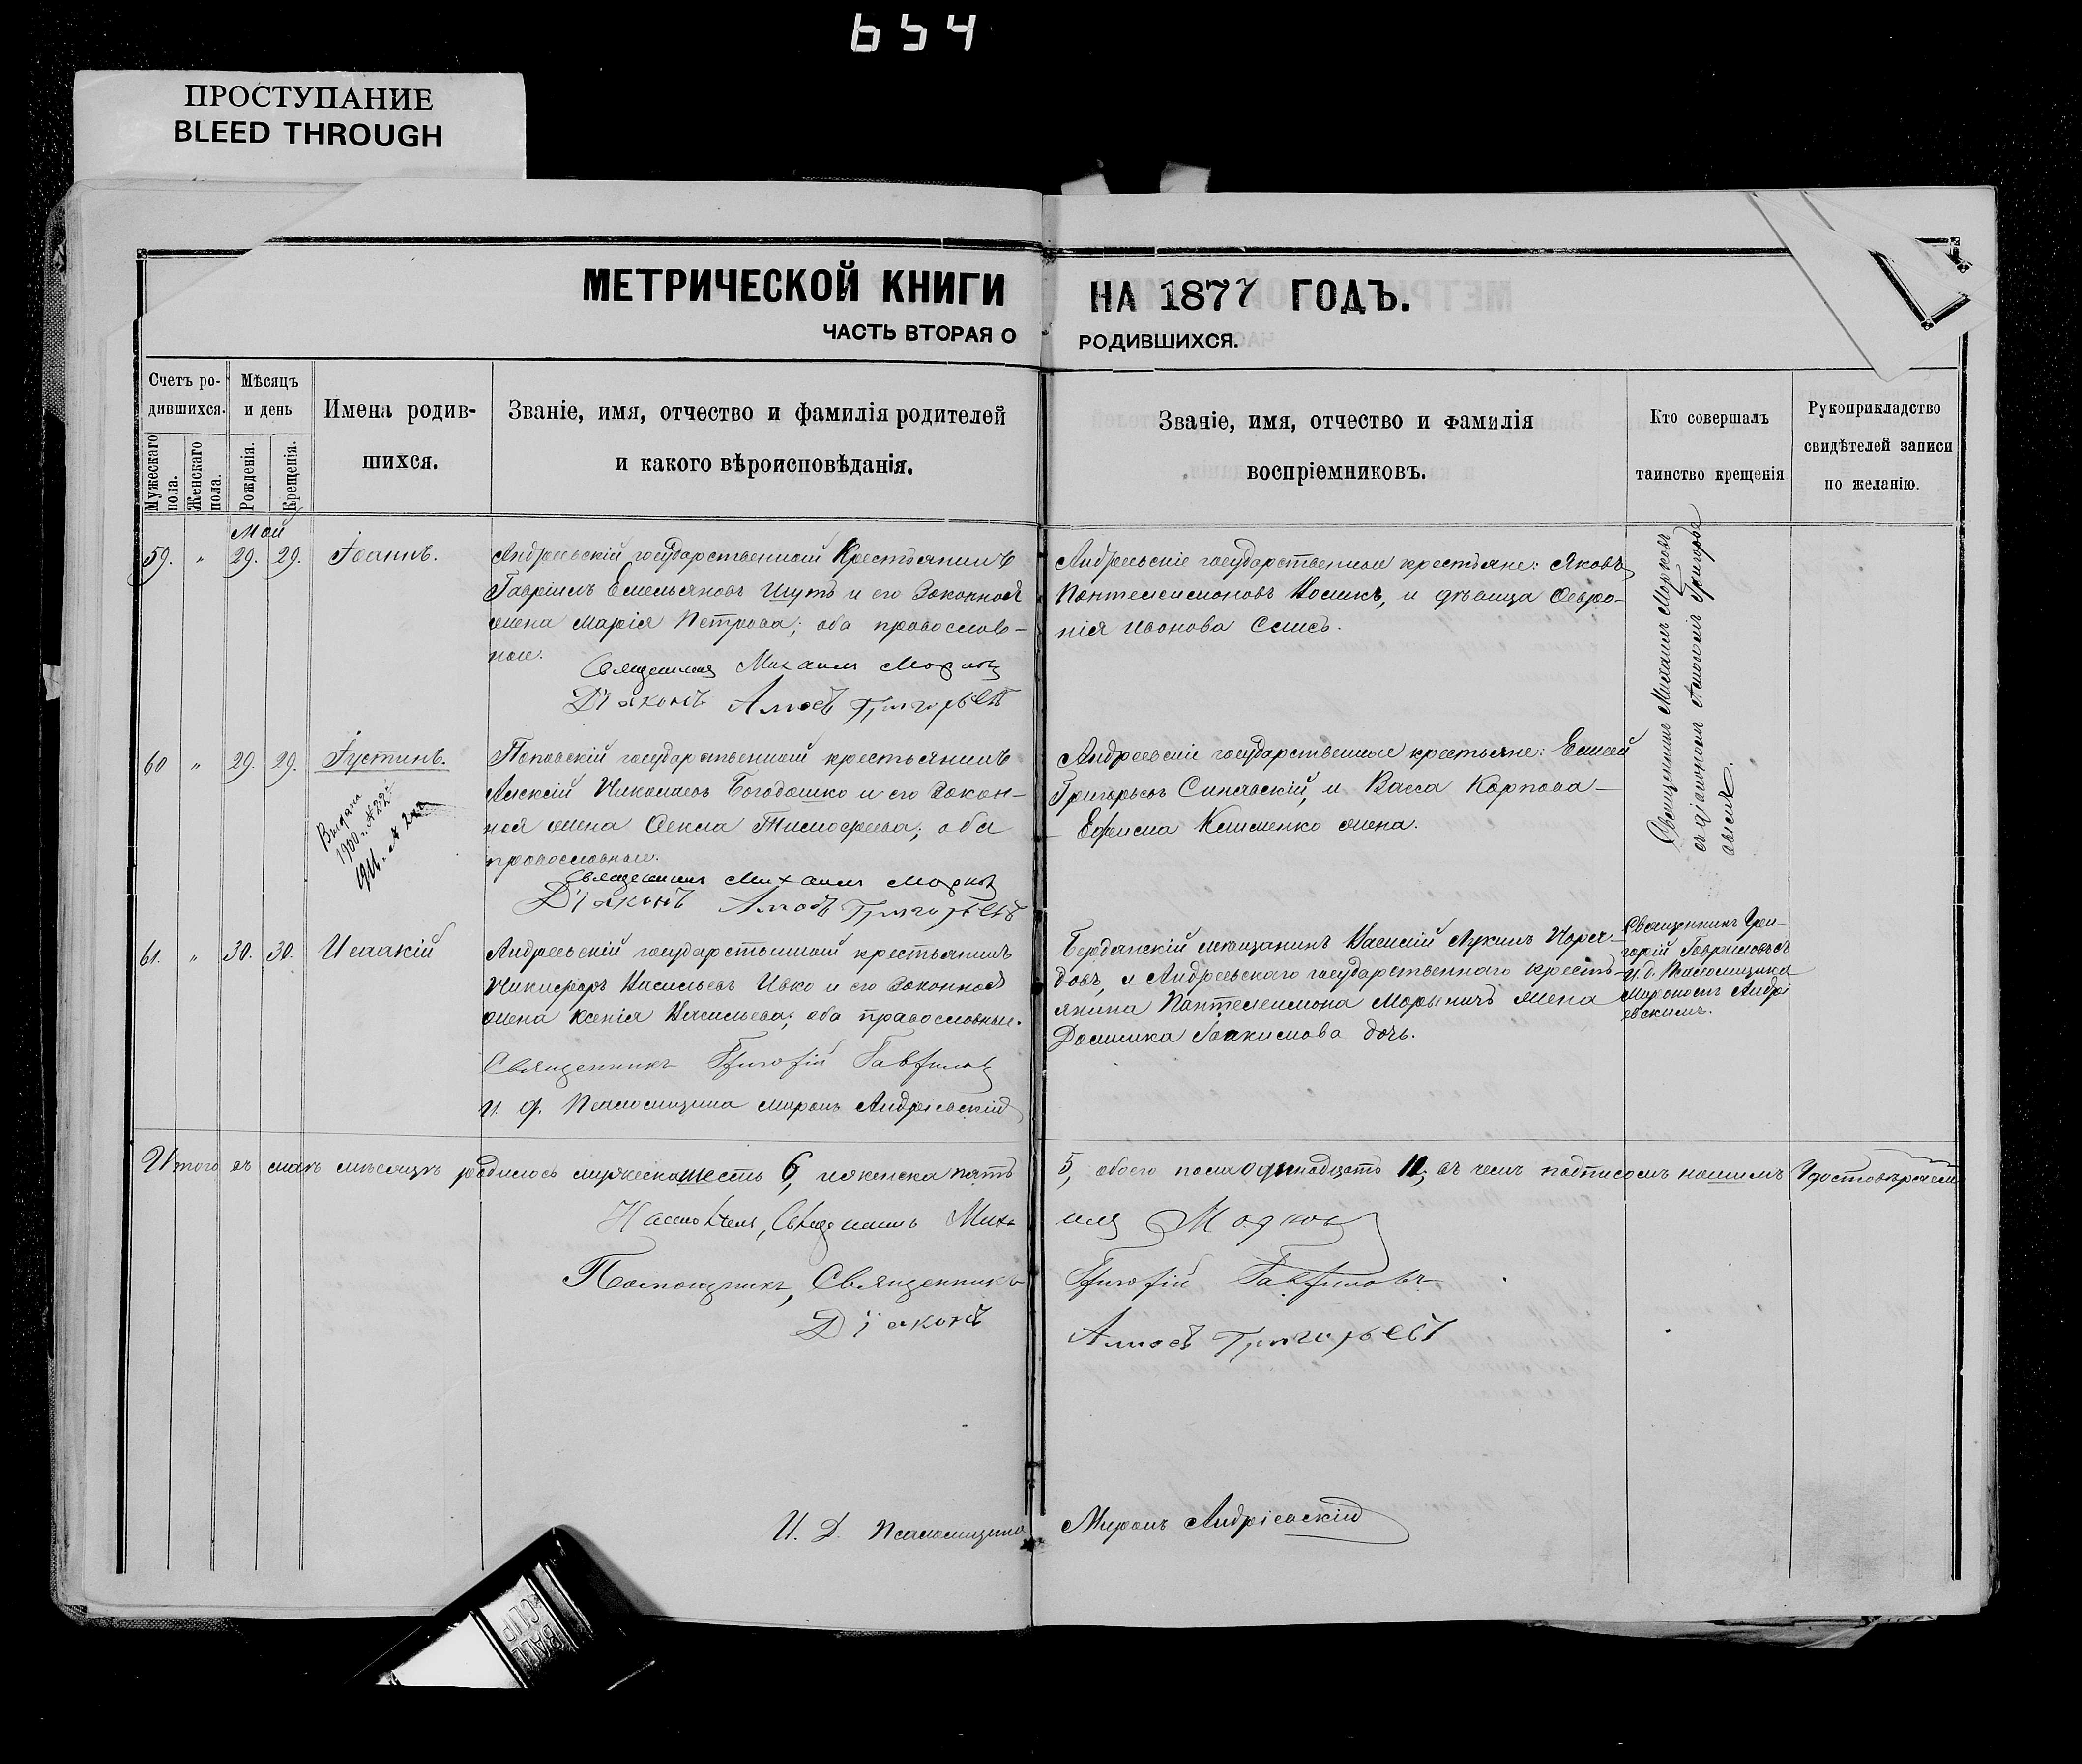 654
ПРОСТУПАНИЕ
BLEED THROUGH
МЕТРИЧЕСКОЙ КНИГИ НА 1877 ГОДЪ.
ЧАСТЬ ВТОРАЯ О РОДИВШИХСЯ.
Счетъ ро-
дившихся.
Мужескаго
пола.
Женскаго
пола.
Мѣсяцъ
и день
Рожденія.
Крещенія.
Имена родив-
шихся.
Званіе, имя, отчество и фамилія родителей
и какого вѣроисповѣданія.
Званіе, имя, отчество и фамилія
воспріемниковъ.
Кто совершалъ
таинство крещенія
Рукоприкладство
свидѣтелей записи
по желанію.
Май
59. " 29. 29. Іоаннъ.
Андреевскій государственный крестьянинъ
Гавріилъ Емельяновъ Шутъ и его законная
жена Марія Петрова; оба православ-
ные.
Священникъ Михаилъ Марковъ
Діаконъ Амосъ Григорьевъ
Андреевскіе государственные крестьяне: Яковъ
Пантелеимоновъ Носикъ, и дѣвица Февро-
нія Иванова
Священникъ Михаилъ Марковъ
съ діакономъ Амосомъ Григорье
вымъ.
60 " 29. 29. Іустинъ.
Выдана
1900 г. № 222
1916.
Поповскій государственный крестьянинъ
Алексій Николаевъ Богодашко и его закон-
ная жена Фекла Тимофеева; оба
православные.
Священникъ Михаилъ Марковъ
Діаконъ Амосъ Григорьевъ
Андреевскіе государственные крестьяне: Елисей
Григорьевъ Синявскій, и Васса Карпова
Ефима Клименко жена.
61. " 30. 30. Исаакій
Андреевскій государственный крестьянинъ
Никифоръ Васильевъ Ивко и его законная
жена Ксенія Васильева; оба православные.
Священникъ Григорій Гавриловъ
и. д. Псаломщика Миронъ Андріевскій
Бердянскій мѣщанинъ Василій Лукинъ
довъ, и Андреевскаго государственнаго кресть-
янина Пантелеимона жена
Домника Іоакимова дочь.
Священникъ Гри-
горій Гавриловъ съ
и. д. Псаломщика
Мирономъ Андрі
евскимъ.
Итого въ маѣ мѣсяцѣ родилось мужеска шесть 6, и женска пять 5, обоего пола одинадцать 11, въ чемъ подписомъ нашимъ Удостовѣряемъ
Настоятель, Священникъ Михаилъ Марковъ
Помощникъ, Священникъ Григорій Гавриловъ
Діаконъ Амосъ Григорьевъ
И. Д. Псаломщика Миронъ Андріевскій